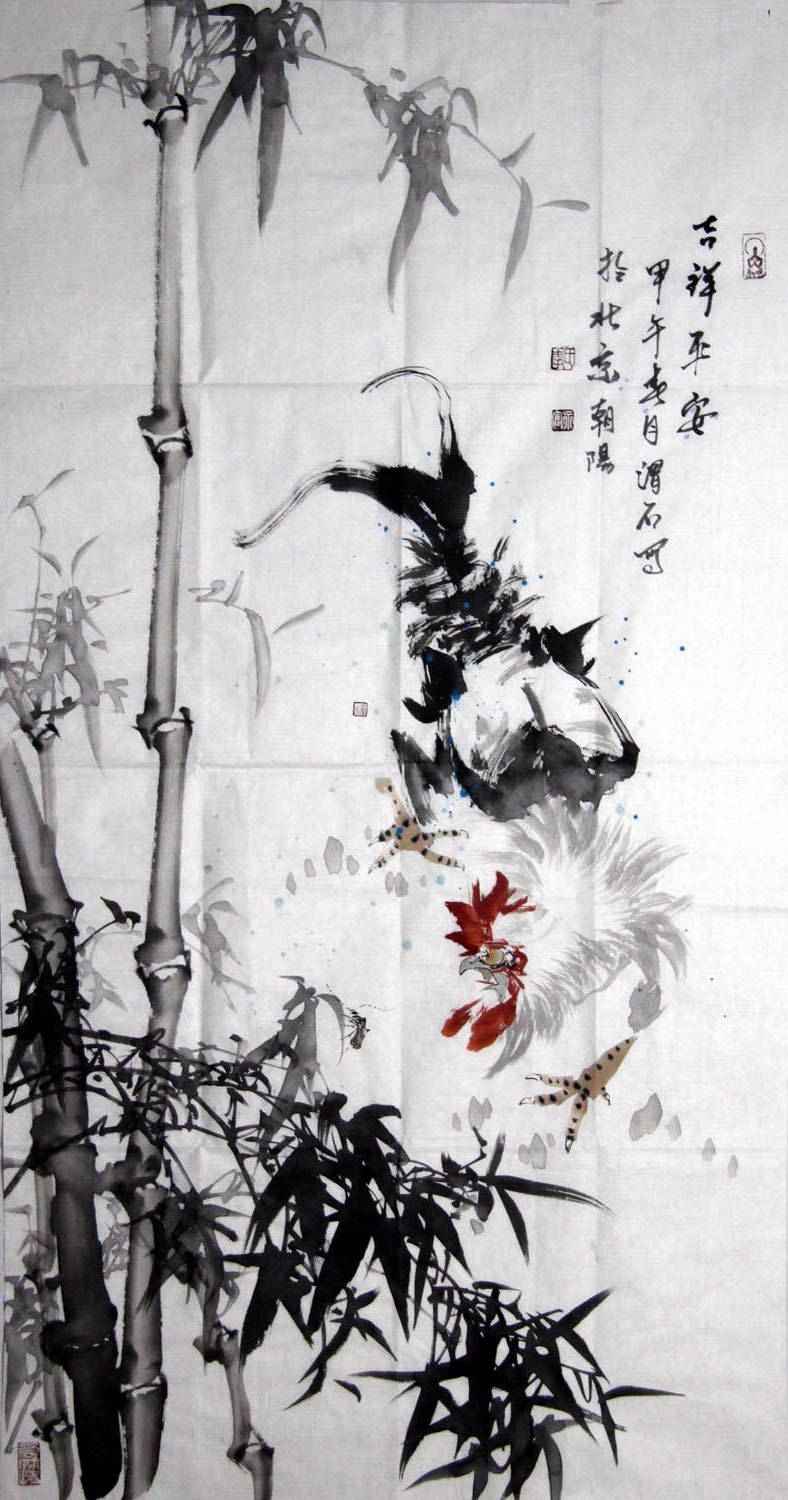 吉祥平安
甲午春月渭石写
於北京朝陽